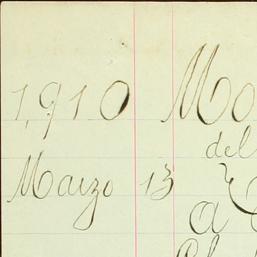 1910 Mo
del
Marzo 13
a